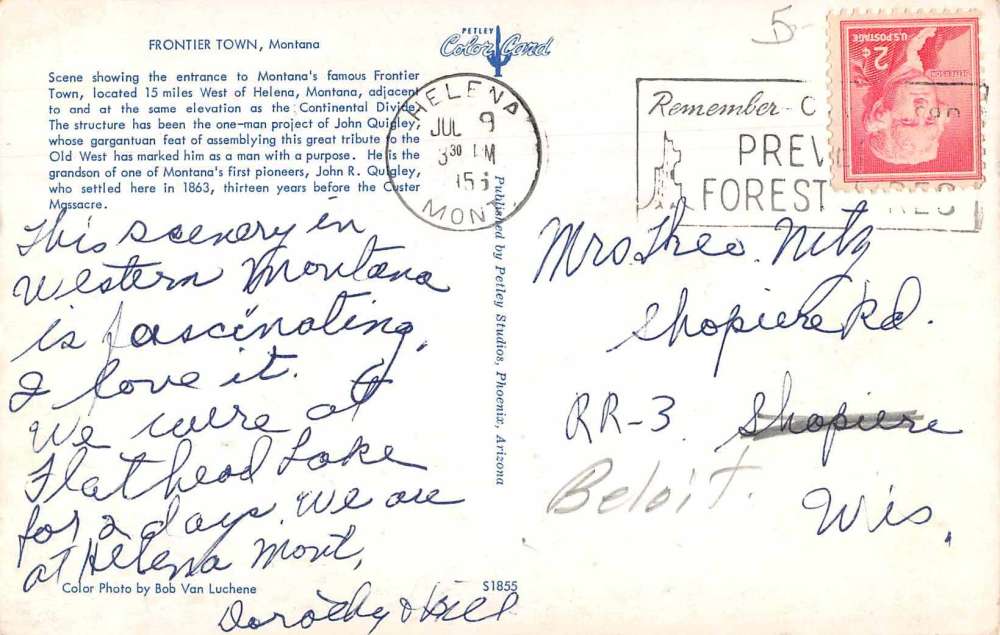 FRONTIER TOWN, Montana
Scene showing the entrance to Montana's famous Frontier
Town, located 15 miles West of Helena, Montana, adjacent
to and at the same elevation as the Continental Divide.
The structure has been the one-man project of John Quigley,
whose gargantuan feat of assembling this great tribute to the
Old West has marked him as a man with a purpose. He is the
grandson of one of Montana's first pioneers, John R. Quigley,
who settled here in 1863, thirteen years before the Custer
Massacre.
This scenery in
Western Montana
is fascinating,
I love it.
We were at
Flathead Lake
for 2 days. We are
at Helena Mont,
Color Photo by Bob Van Luchene
Dorothy & Bill
PETLEY
Color Card
HELENA
JUL 9
3 30 PM
MONT
Published by Petley Studios, Phoenix, Arizona
S1855
5-
Remember-
PREV
FOREST
U.S. POSTAGE
2¢
JEFFERSON
Mrs. Theo. Nitz
Shopiere Rd.
RR-3. Shopiere
Beloit.
Wis.